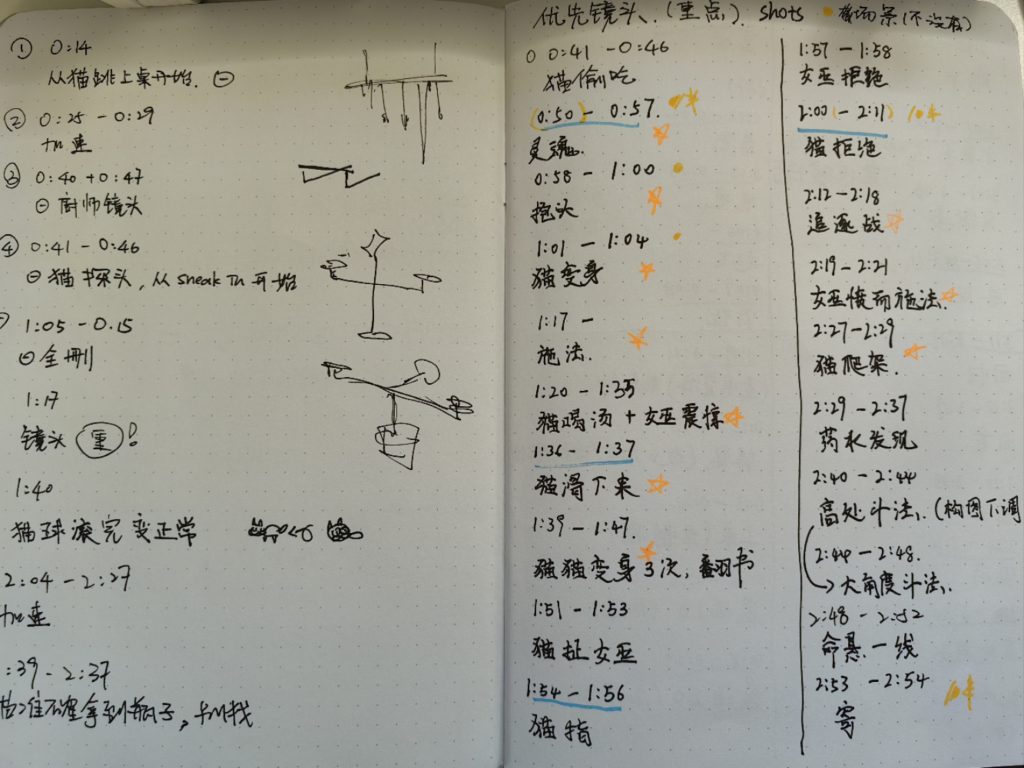 ① 0:14
从猫跳上桌开始. ⊖
② 0:25 - 0:29
加速
③ 0:40 + 0:47
⊖ 厨师镜头
④ 0:41 - 0:46
⊖ 猫探头, 从 sneak in 开始
1:05 - 0.15
⊖ 全删
1:17
镜头 重!
1:40
猫球滚完变正常
2:04 - 2:27
加速
:39 - 2:37
拿到瓶子,
优先镜头. (重点). shots
0:41 - 0:46
猫偷吃
(0:50) - 0:57.
灵魂.
0:58 - 1:00
抱头
1:01 - 1:04
猫变身
1:17 -
施法.
1:20 - 1:35
猫喝汤 + 女巫震惊
1:36 - 1:37
猫滑下来
1:39 - 1:47.
猫猫变身3次, 翻书
1:51 - 1:53
猫扯女巫
1:54 - 1:56
猫指
1:57 - 1:58
女巫拒绝
2:00 (- 2:11)
猫拒绝
2:12 - 2:18
追逐战
2:19 - 2:21
女巫愤而施法.
2:27 - 2:29
猫爬架.
2:29 - 2:37
药水发现
2:40 - 2:44
高处斗法. (构图下调
2:44 - 2:48.
大角度斗法.
2:48 - 2:52
命悬一线
2:53 - 2:54
寄